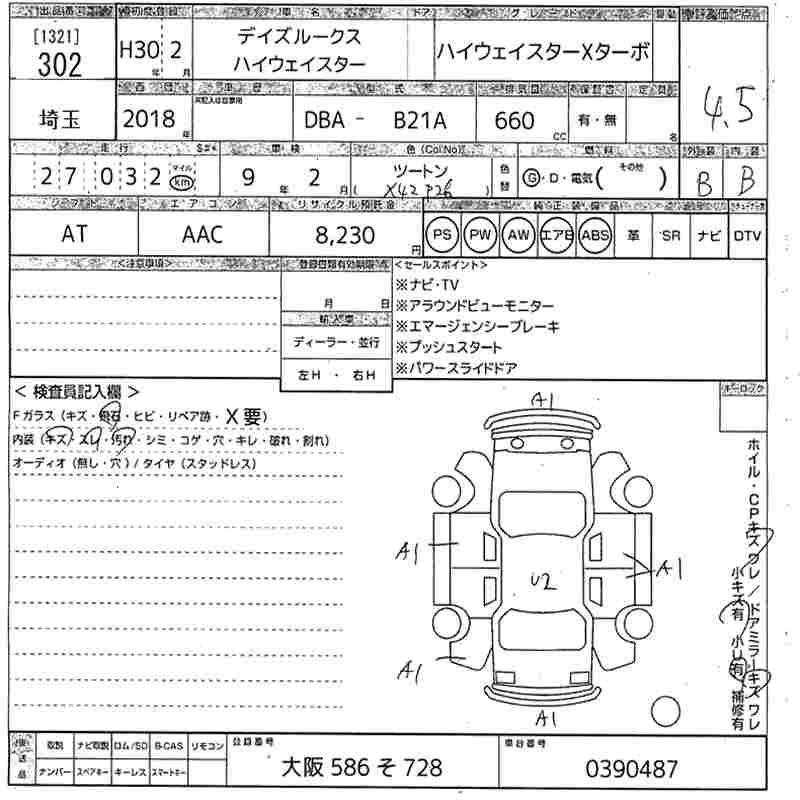 出品番号 初度登録 車名 ドア グレード 形動 評価点
[1321]
302
H30年 2月
デイズルークス
ハイウェイスター
ハイウェイスターXターボ
4.5
会場 車歴 型式 排気量 保証書 定員
埼玉
2018年
DBA - B21A
660cc
有・無
名
走行 車検 色(Col No) 燃料 外装 内装
27,032 マイル km
9年 2月
ツートン
(X42 P2B)
色替
G・D・電気( その他 )
B B
シフト エアコン リサイクル預託金 純正装備品
AT
AAC
8,230円
PS PW AW エアB ABS 革 SR ナビ DTV
<注意事項> 登録書類有効期限
月 日
輸入車
ディーラー・並行
左H ・ 右H
<セールスポイント>
※ナビ・TV
※アラウンドビューモニター
※エマージェンシーブレーキ
※プッシュスタート
※パワースライドドア
< 検査員記入欄 >
Fガラス(キズ・飛石・ヒビ・リペア跡・X要)
内装(キズ・スレ・汚れ・シミ・コゲ・穴・キレ・破れ・割れ)
オーディオ(無し・穴)/タイヤ(スタッドレス)
キーロック
A1
A1
A1
U2
A1
A1
ホイル・CPキズワレ/ドアミラーキズワレ
小キズ有 小U有 補修有
後送品
取説 ナビ取説 ロム/SD B-CAS リモコン
ナンバー スペアキー キーレス スマートキー
登録番号
大阪 586 そ 728
車台番号
0390487